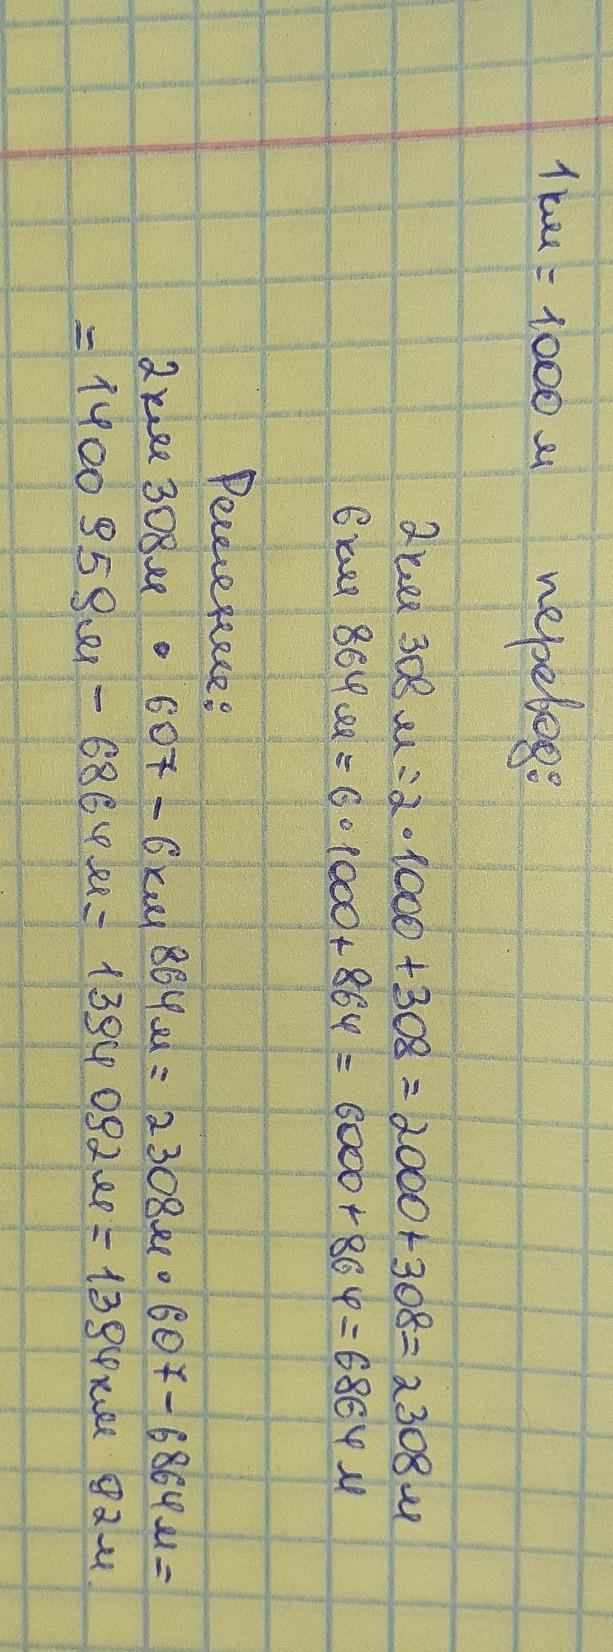 1 км = 1000 м перевод:
2 км 308 м = 2·1000 + 308 = 2000 + 308 = 2308 м
6 км 864 м = 6·1000 + 864 = 6000 + 864 = 6864 м
Решение:
2 км 308 м · 607 - 6 км 864 м = 2308 м · 607 - 6864 м =
= 1400 959 м - 6864 м = 1394 092 м = 1394 км 92 м.